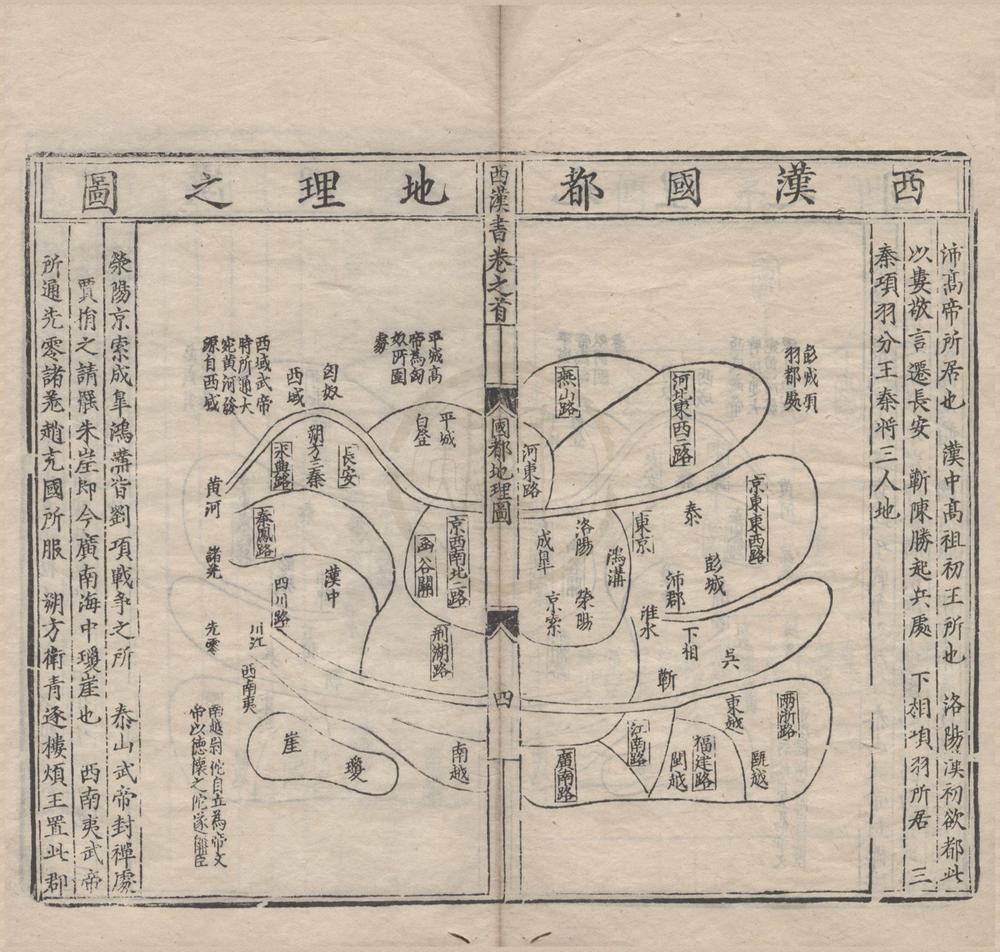 西漢國都地理之圖
沛高帝所居也 漢中高祖初王所也 洛陽漢初欲都此
以婁敬言遷長安 蘄陳勝起兵處 下相項羽所居 三
秦項羽分王秦將三人地
彭城項
羽都處
燕山路
河北東西二路
河東路
京東東西路
泰
東京
洛陽
成皐
鴻溝
滎陽
京索
彭城
沛郡
淮水
下相
吳
蘄
兩浙路
東越
甌越
福建路
閩越
江南路
廣南路
西漢書卷之首
國都地理圖
四
平城高
帝為匈
奴所圍
處
匈奴
西域
西域武帝
時所通大
宛黃河發
源自西域
平城
白登
長安
朔方三秦
永興路
黃河
秦鳳路
京西南北二路
函谷關
漢中
四川路
諸羌
先零
川江
荊湖路
西南夷
南越
南越尉佗自立為帝文
帝以德懷之佗遂稱臣
瓊
崖
滎陽京索成皐鴻溝皆劉項戰爭之所 泰山武帝封禪處
賈捐之請棄朱崖即今廣南海中瓊崖也 西南夷武帝
所通先零諸羌趙充國所服 朔方衛青逐樓煩王置此郡